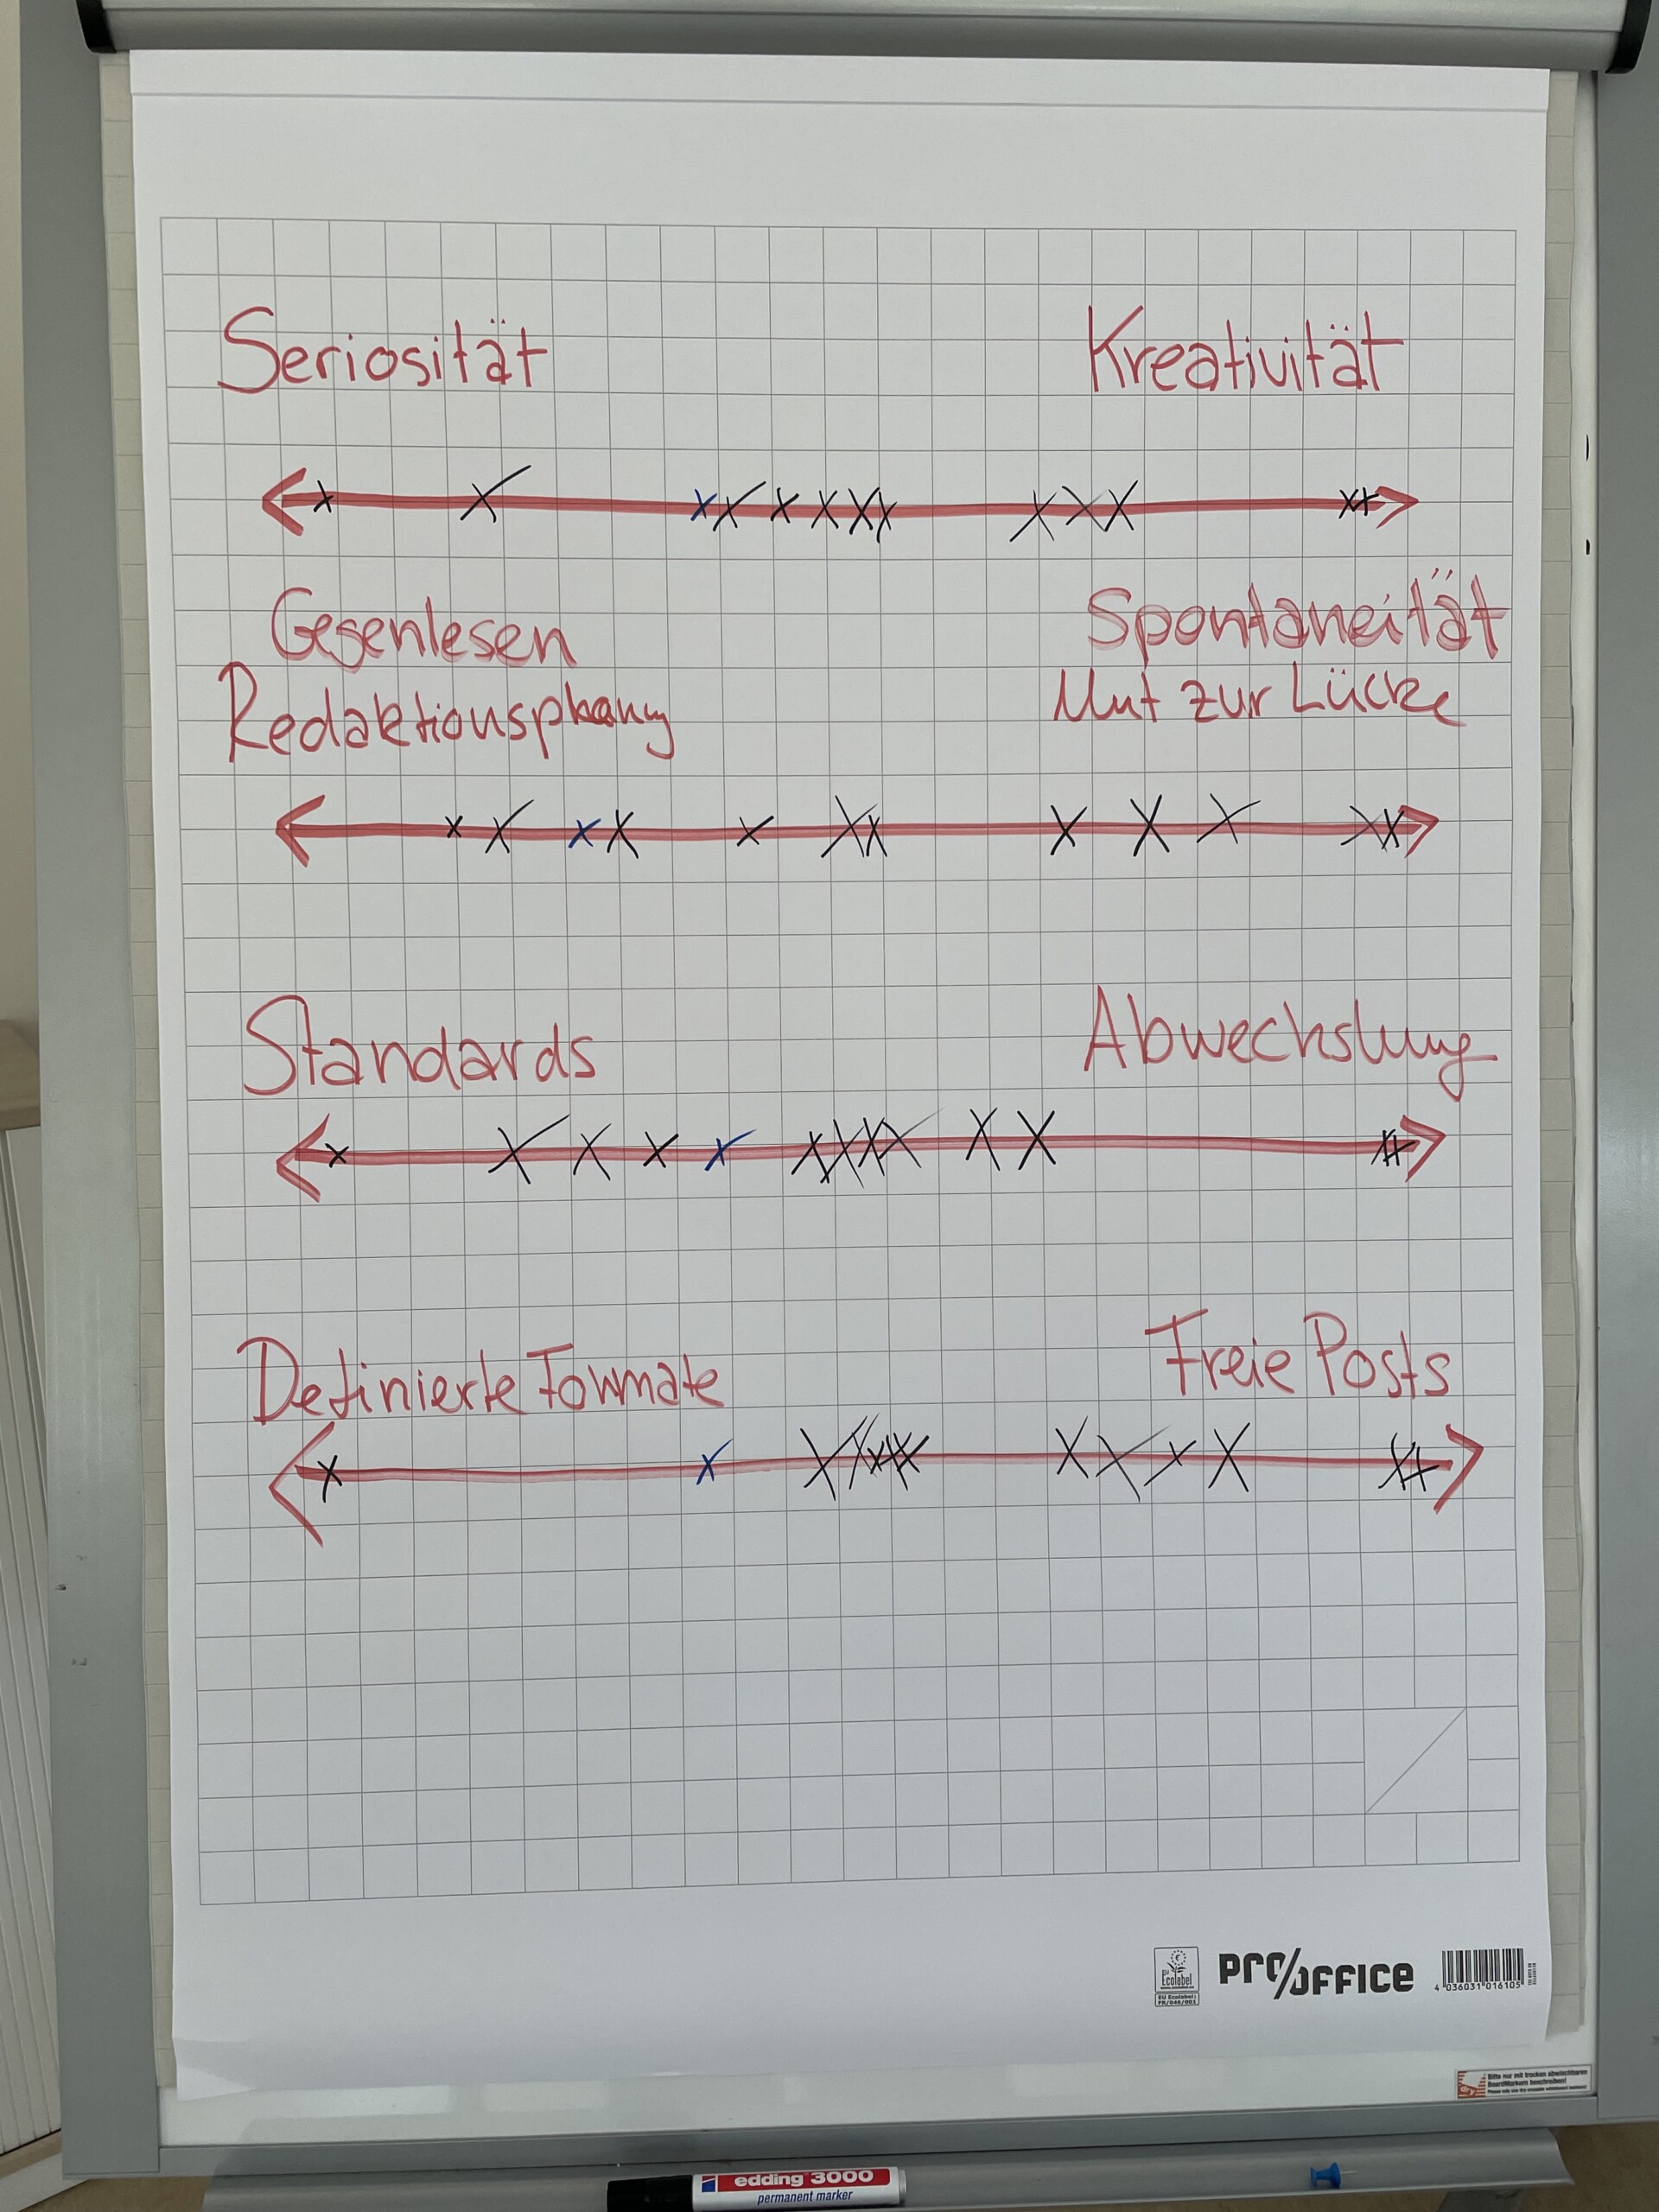 Seriosität Kreativität
Gegenlesen Spontaneität
Redaktionsplanung Mut zur Lücke
Standards Abwechslung
Definierte Formate Freie Posts
EU Ecolabel
EU Ecolabel:
FR/046/001
PRO/OFFICE
4 036031 016105
Bitte nur mit trocken abwischbaren
BoardMarkern beschreiben!
edding 3000
permanent marker